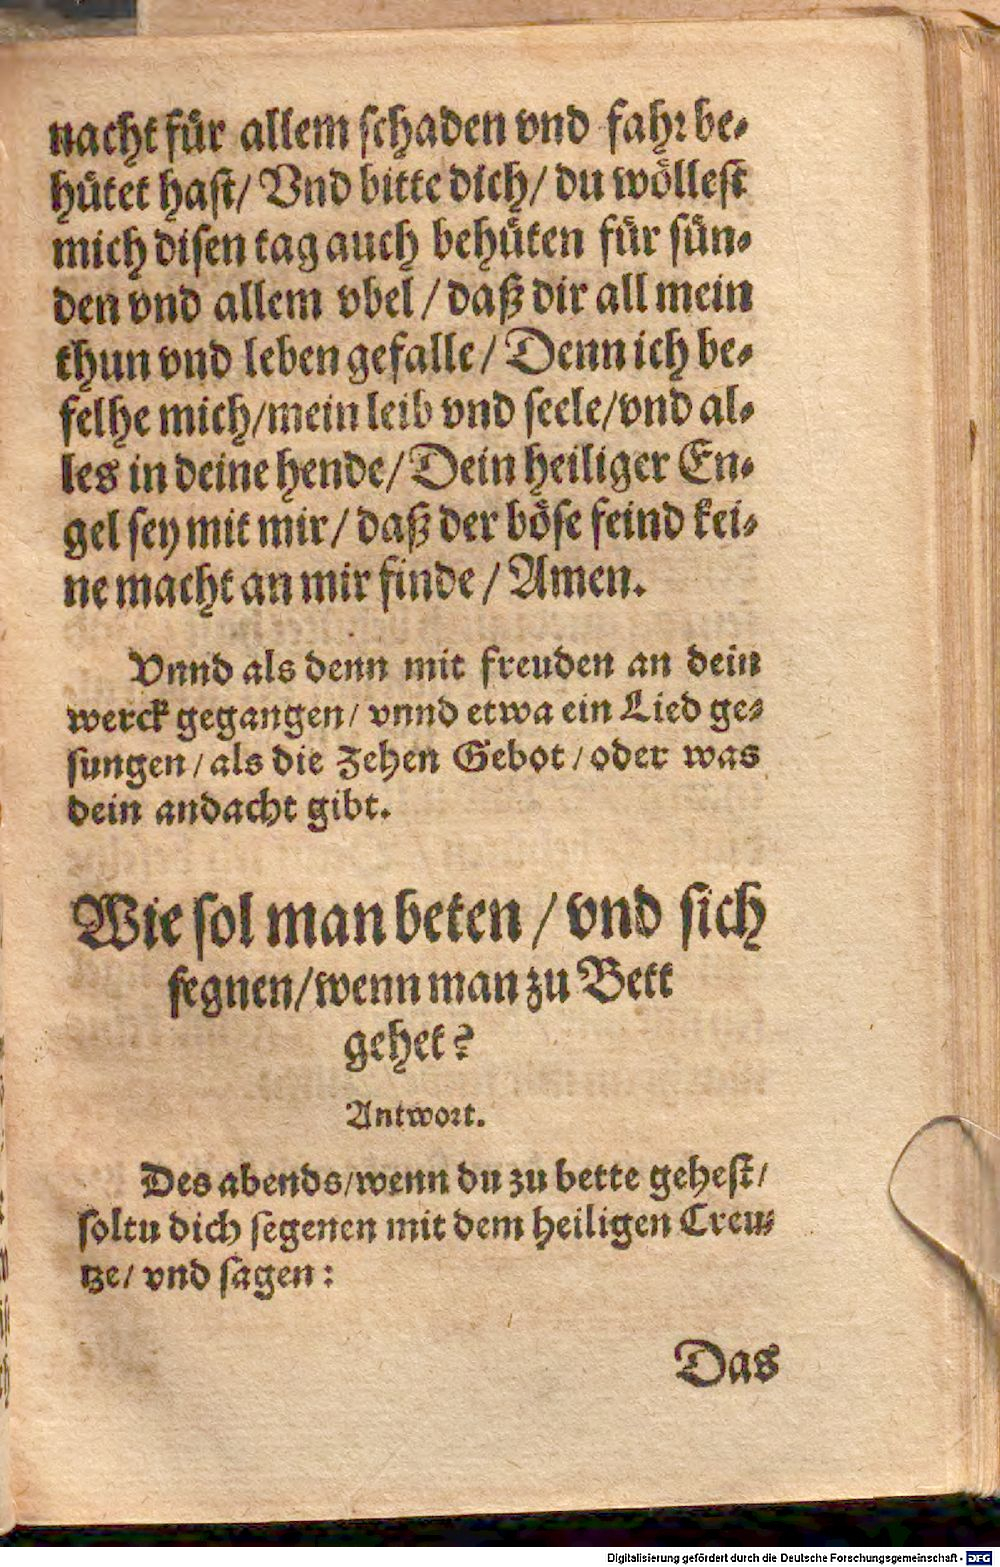 nacht fuͤr allem ſchaden vnd fahꝛ be⸗
huͤtet haſt/ Vnd bitte dich/ du woͤlleſt
mich diſen tag auch behuͤten fuͤr ſuͤn⸗
den vnd allem vbel / daß dir all mein
thun vnd leben gefalle / Denn ich be⸗
felhe mich/mein leib vnd ſeele/vnd al⸗
les in deine hende/ Dein heiliger En⸗
gel ſey mit mir/ daß der boͤſe feind kei⸗
ne macht an mir finde / Amen.
Vnnd als denn mit freuden an dein
werck gegangen/ vnnd etwa ein Lied ge⸗
ſungen/als die Zehen Gebot/oder was
dein andacht gibt.
Wie ſol man beten / vnd ſich
ſegnen/wenn man zu Bett
gehet?
Antwoꝛt.
Des abends/wenn du zu bette geheſt/
ſoltu dich ſegenen mit dem heiligen Creu⸗
tze/ vnd ſagen:
Das
Digitalisierung gefördert durch die Deutsche Forschungsgemeinschaft - DFG